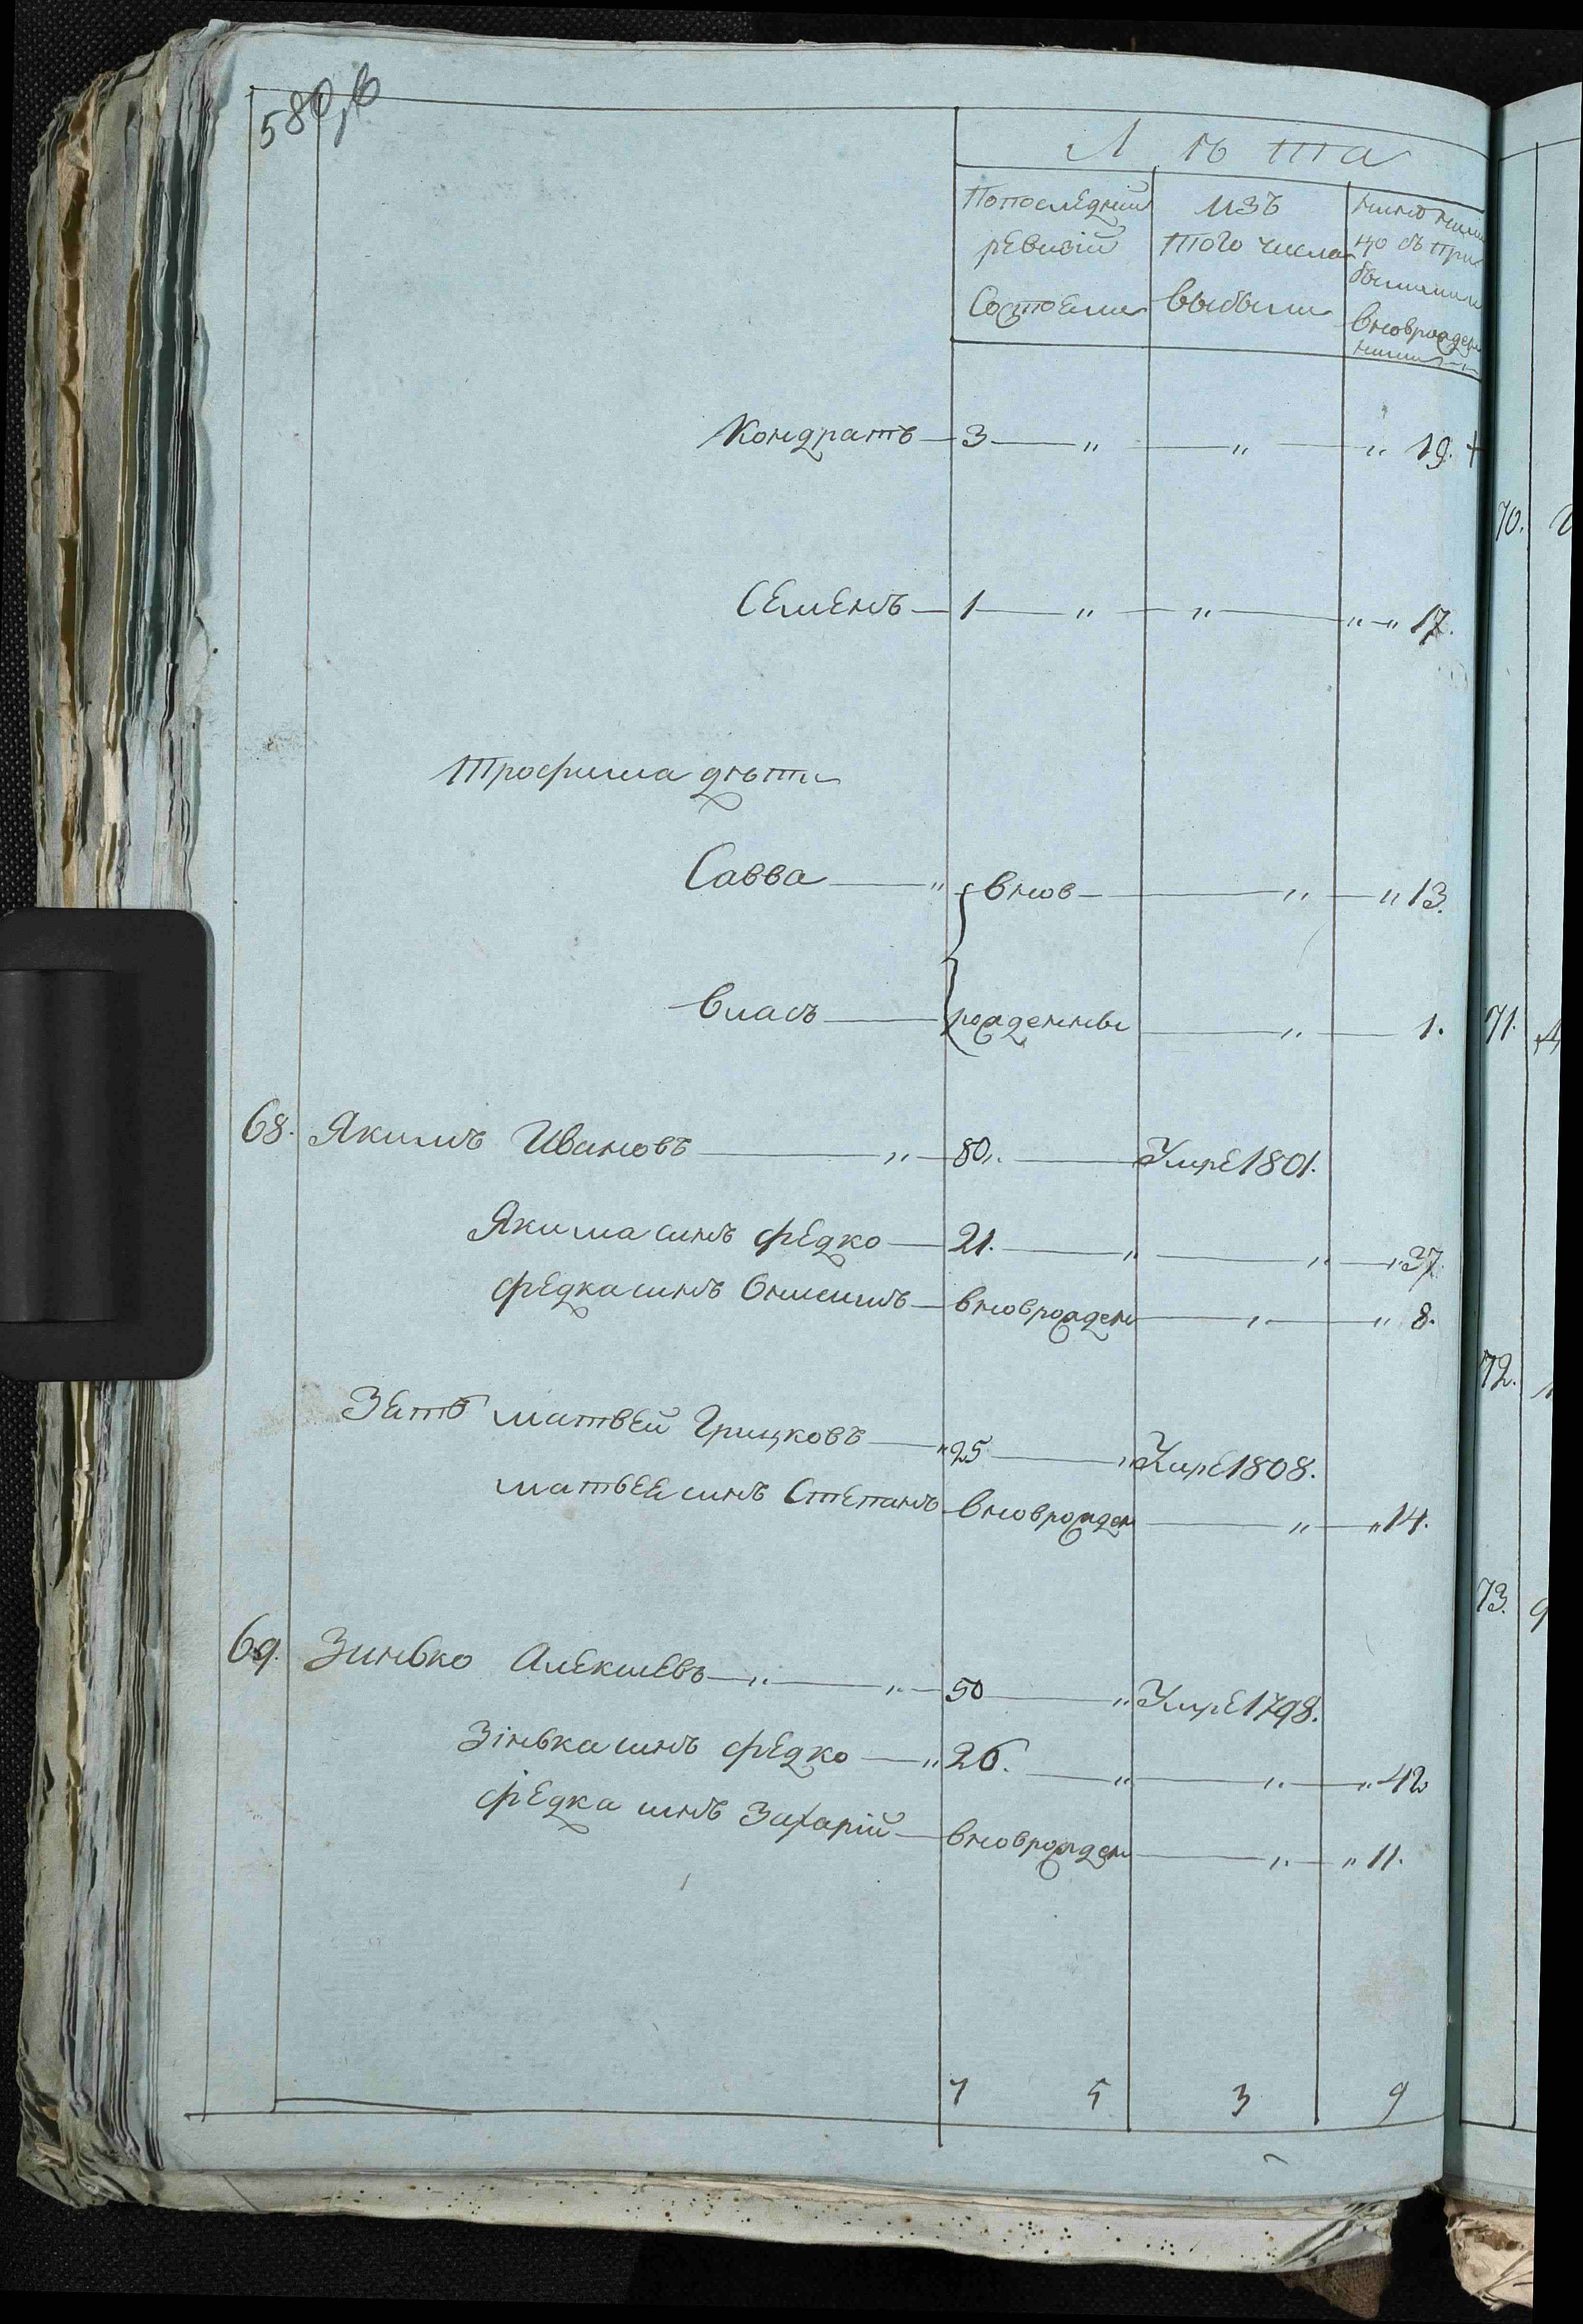 580,б
Лѣта
Попоследній ревизіи Состоели
изъ того числа выбыли
ныне нали цо съ при былыми вновврожден ными
Кондратъ — 3 — „ — „ — „ 19. +
Семенъ — 1 — „ — „ — „ — „ 17.
Трофима дѣти
Савва — „ — внов — „ — „ 13.
Власъ — рожденны — „ — 1.
68. Якимъ Ивановъ — „ — 80 „. — Умре 1801.
Якима синъ Федко — 21. — „ — „ — „ 37.
Федка синъ Онисимъ — вновврожден — „ — „ 8.
Зеть матвей Грицковъ — „ 25 — „ Умре 1808.
матвее синъ Степанъ — вновврожден — „ — „ 14.
69. Зинько Алексеевъ — „ — „ — 50 — „ Умре 1798.
Зінька синъ Федко — „ 26. — „ — „ — „ 42
Федка синъ Захарій — вновврожден — „ — „ 11.
7 5 3 9
70.
71.
72.
73.